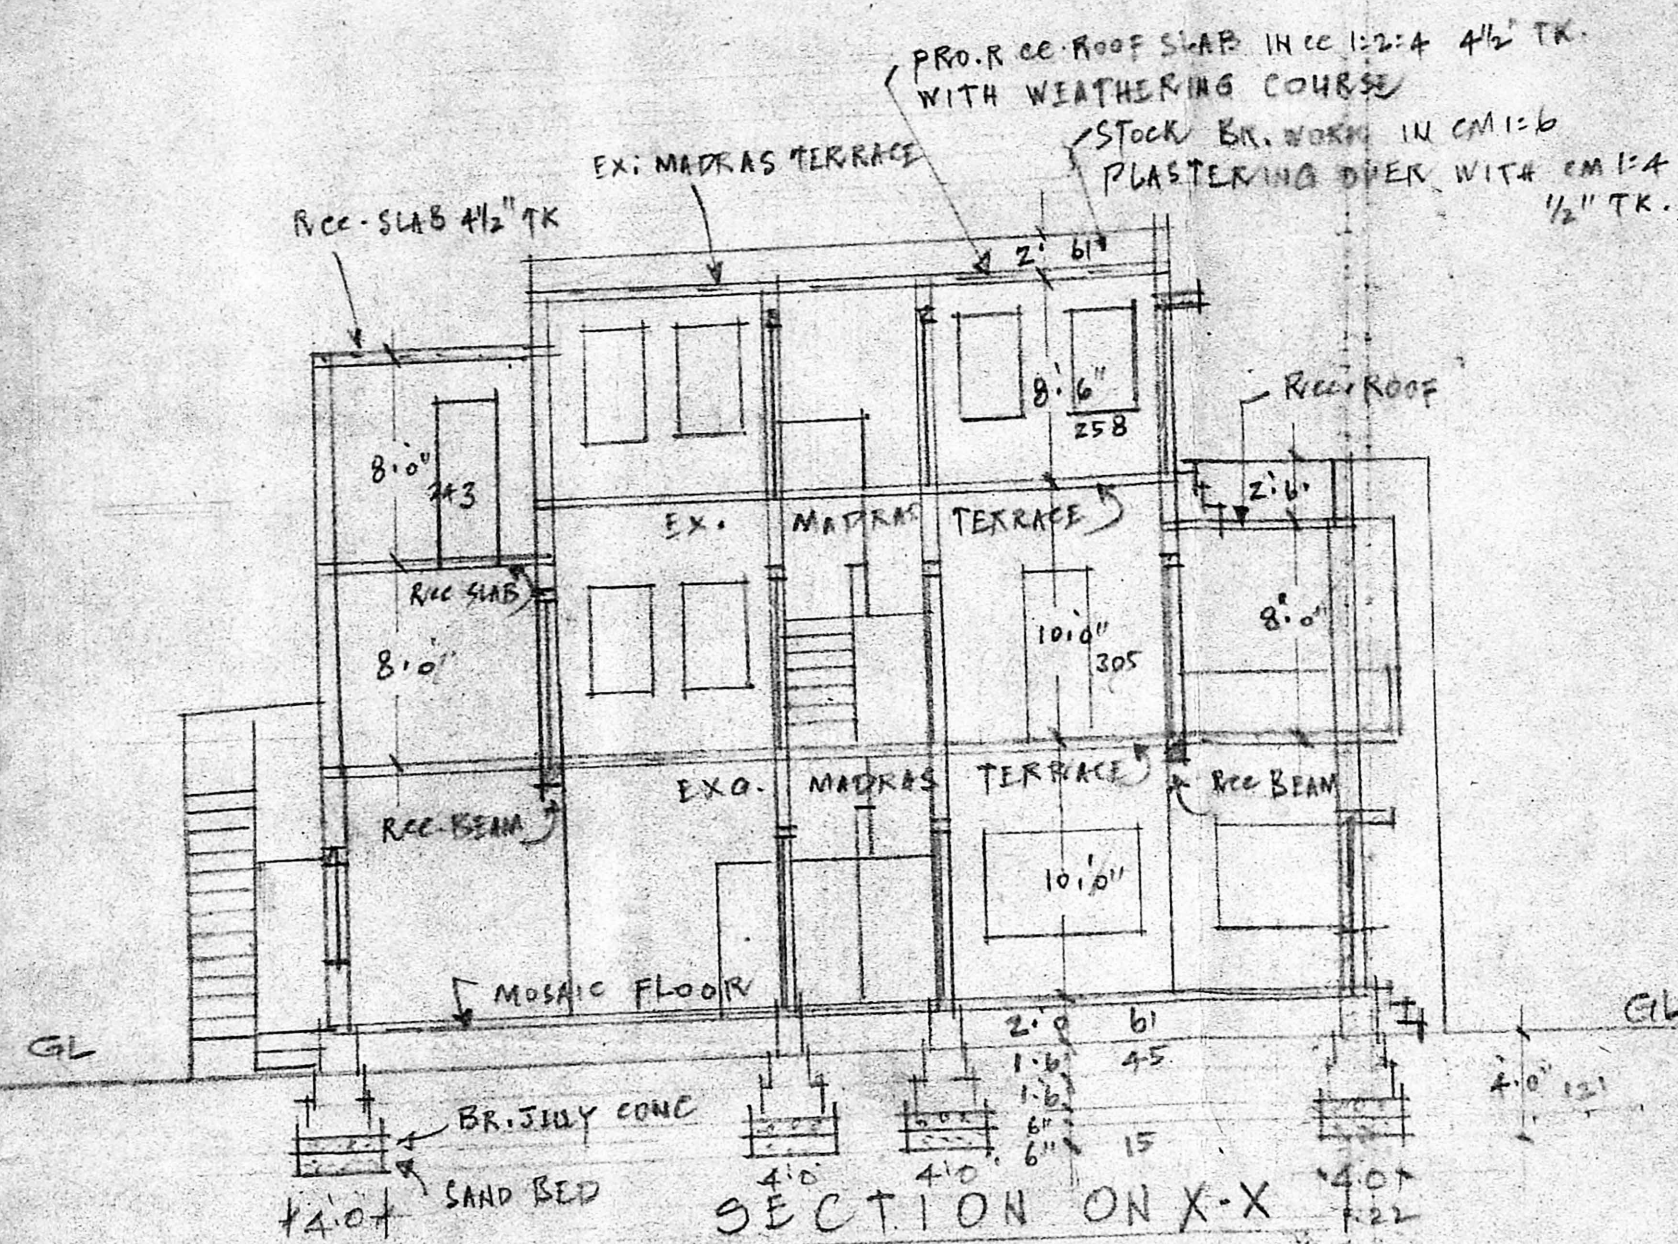 PRO.R CC.ROOF SLAB IN CC 1:2:4 4½" TK.
WITH WEATHERING COURSE
STOCK BR. WORK IN CM 1:6
PLASTERING OVER WITH CM 1:4
½" TK.
EX: MADRAS TERRACE
RCC-SLAB 4½" TK
2' 61
8'.6"
258
RCC.ROOF
8'.0"
243
2'.6"
EX. MADRAS TERRACE
RCC SLAB
8'.0"
10'.0"
305
8'.0"
EXG. MADRAS TERRACE
RCC BEAM
RCC-BEAM
10'.0"
MOSAIC FLOOR
GL
GL
2'. 61
1'.6" 45
1'.6"
6"
6" 15
4'.0" 121
BR.JILLY CONC
SAND BED
4'.0"
4'.0"
4'.0"
4'.0"
1.22
SECTION ON X-X